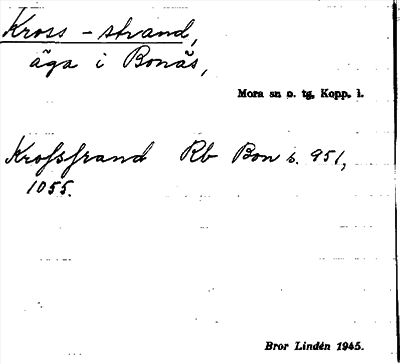 Kross-strand,
äga i Bonäs,
Mora sn o. tg, Kopp. l.
Krossstrand Rb Bon s. 951,
1055.
Bror Lindén 1945.